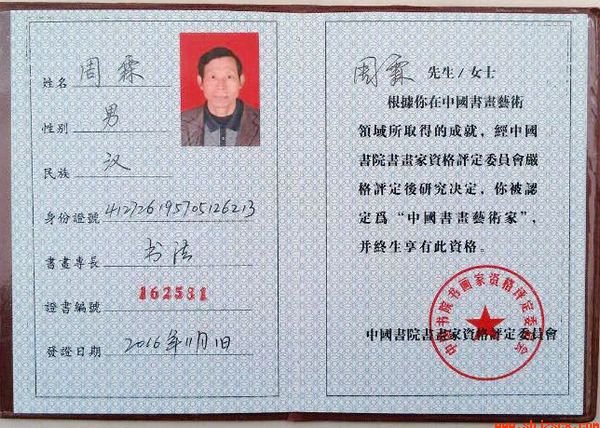 姓名 周霖
性别 男
民族 汉
身份證號 412726195705126213
書畫專長 书法
證書編號 162531
發證日期 2016年11月1日
周霖 先生/女士
根據你在中國書畫藝術
領域所取得的成就，經中國
書院書畫家資格評定委員會嚴
格評定後研究决定，你被認
定爲“中國書畫藝術家”，
并終生享有此資格。
中國書院書畫家資格評定委員會
中国书院书画家资格评定委员会